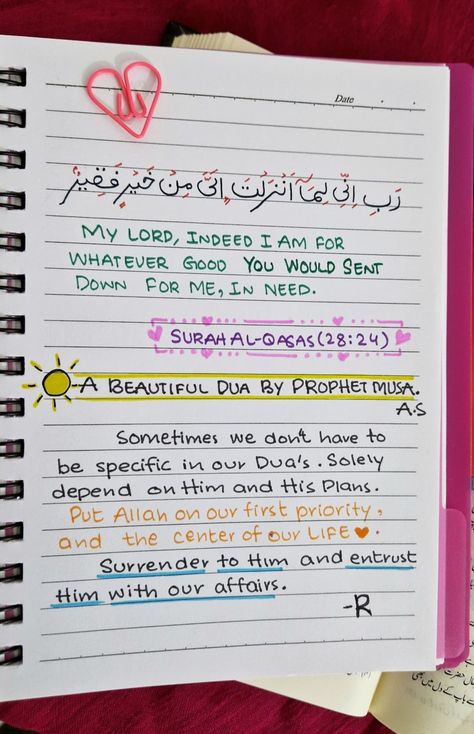 Date
رَبِ اِنِّی لِمَاۤ اَنْزَلْتَ اِلَیَّ مِنْ خَیْرٍ فَقِیْرٌ
MY LORD, INDEED I AM FOR
WHATEVER GOOD YOU WOULD SENT
DOWN FOR ME, IN NEED.
SURAH AL-QASAS (28:24)
A BEAUTIFUL DUA BY PROPHET MUSA.
A.S
Sometimes we don't have to
be specific in our Dua's. Solely
depend on Him and His Plans.
Put Allah on our first priority,
and the center of our LIFE ♥.
Surrender to Him and entrust
Him with our affairs.
-R